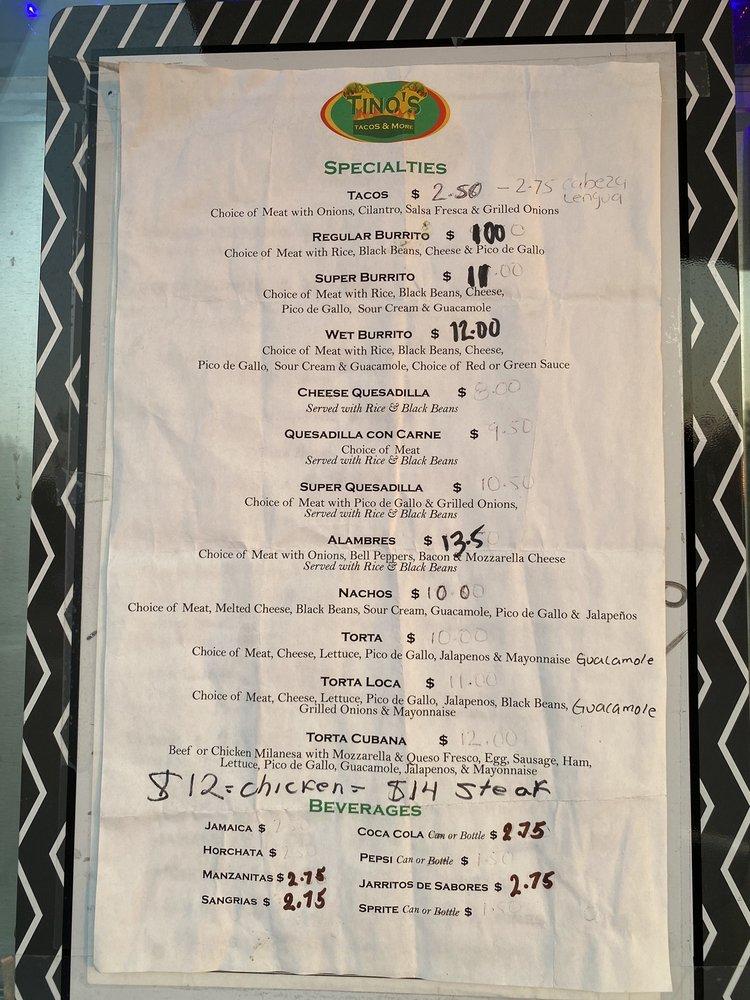 TINO'S
TACOS & MORE
SPECIALTIES
TACOS $ 2.50 - 2.75 cabeza
Lengua
Choice of Meat with Onions, Cilantro, Salsa Fresca & Grilled Onions
REGULAR BURRITO $ 100 0
Choice of Meat with Rice, Black Beans, Cheese & Pico de Gallo
SUPER BURRITO $ 11.00
Choice of Meat with Rice, Black Beans, Cheese,
Pico de Gallo, Sour Cream & Guacamole
WET BURRITO $ 12.00
Choice of Meat with Rice, Black Beans, Cheese,
Pico de Gallo, Sour Cream & Guacamole, Choice of Red or Green Sauce
CHEESE QUESADILLA $ 8.00
Served with Rice & Black Beans
QUESADILLA CON CARNE $ 9.50
Choice of Meat
Served with Rice & Black Beans
SUPER QUESADILLA $ 10.50
Choice of Meat with Pico de Gallo & Grilled Onions,
Served with Rice & Black Beans
ALAMBRES $ 13.5
Choice of Meat with Onions, Bell Peppers, Bacon & Mozzarella Cheese
Served with Rice & Black Beans
NACHOS $ 10.00
Choice of Meat, Melted Cheese, Black Beans, Sour Cream, Guacamole, Pico de Gallo & Jalapeños
TORTA $ 10.00
Choice of Meat, Cheese, Lettuce, Pico de Gallo, Jalapenos & Mayonnaise Gualamole
TORTA LOCA $ 11.00
Choice of Meat, Cheese, Lettuce, Pico de Gallo, Jalapenos, Black Beans, Guacamole
Grilled Onions & Mayonnaise
TORTA CUBANA $ 12.00
Beef or Chicken Milanesa with Mozzarella & Queso Fresco, Egg, Sausage, Ham,
Lettuce, Pico de Gallo, Guacamole, Jalapenos, & Mayonnaise
$12=chicken= $14 steak
BEVERAGES
JAMAICA $
HORCHATA $
MANZANITAS $ 2.75
SANGRIAS $ 2.75
COCA COLA Can or Bottle $ 2.75
PEPSI Can or Bottle $ 1.50
JARRITOS DE SABORES $ 2.75
SPRITE Can or Bottle $ 1.50